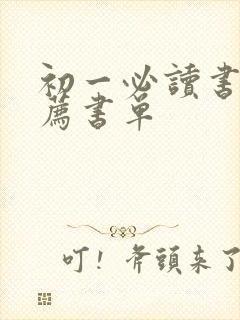 初一必讀書
薦書單
叮！斧頭來了